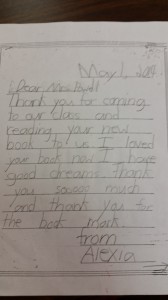 May 1, 2014
Dear Mrs.
Thank you for coming
to our class and
reading your new
book to us. I loved
your book now I have
good dreams thank
you sososo much
and thank you for
the book mark
from
Alexia